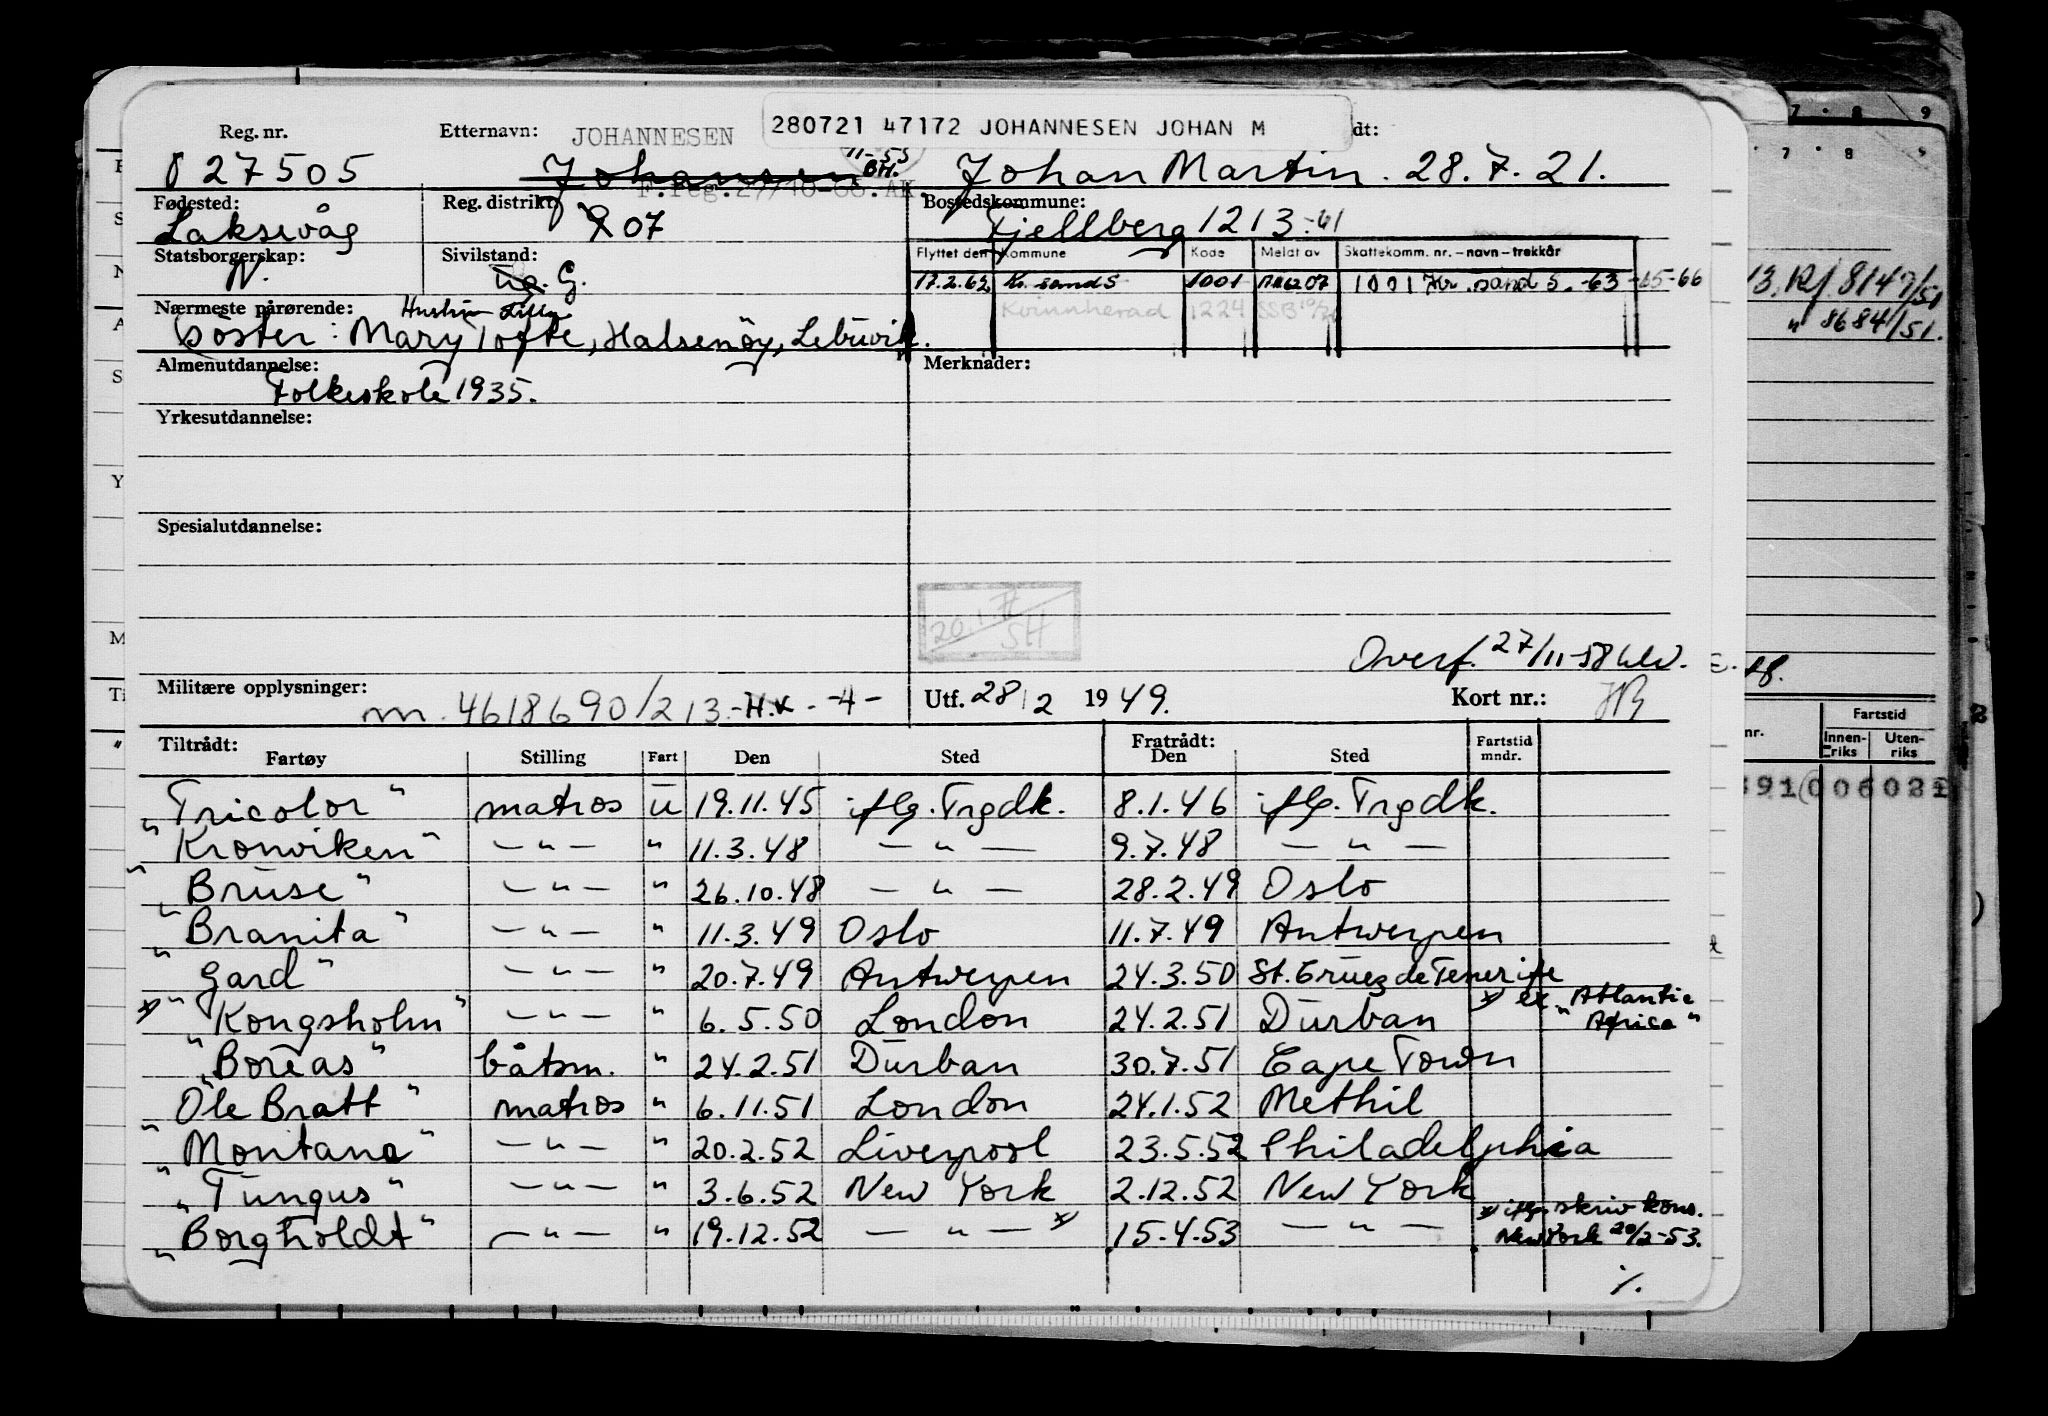 Reg. nr. Etternavn: JOHANNESEN 280721 47172 JOHANNESEN JOHAN M dt:
027505 Johansen 11-55 BH. Johan Martin. 28.7.21.
F.reg.27/10-66.AK.
Fødested: Reg. distrikt: Bostedskommune:
Laksevåg 207 Fjellberg 1213-61
Statsborgerskap: Sivilstand: Flyttet den Kommune Kode Meldt av Skattekomm. nr. – navn – trekkår
N. Ug. G. 17.2.62 Kr. sand S 1001 1001 Kr. sand S. -63 -65-66
Kvinnherad 1224
Nærmeste pårørende: Hustru Lilly
Söster: Mary Tofte, Halsenöy, Lebuvik.
Almenutdannelse: Merknader:
Folkeskole 1935.
Yrkesutdannelse:
Spesialutdannelse:
20.1.77
SH
Overf. 27/11-58
Militære opplysninger: m. 4618690/213.-H.K.-4- Utf. 28/2 1949. Kort nr.:
Tiltrådt: Fratrådt:
Fartøy Stilling Fart Den Sted Den Sted Fartstid mndr.
"Tricolor" matros U 19.11.45 iflg. Trgdk. 8.1.46 iflg. Trgdk.
"Kronviken" — " — " 11.3.48 — " — 9.7.48 — " —
"Bruse" — " — " 26.10.48 — " — 28.2.49 Oslo
"Branita" — " — " 11.3.49 Oslo 11.7.49 Antwerpen
"Gard" — " — " 20.7.49 Antwerpen 24.3.50 St. Cruez de Tenerife
x "Kongsholm" — " — " 6.5.50 London 24.2.51 Durban x ex "Atlantic Africa"
"Boreas" båtsm. " 24.2.51 Durban 30.7.51 Cape Town
"Ole Bratt" matros " 6.11.51 London 24.1.52 Methil
"Montana" — " — " 20.2.52 Liverpool 23.5.52 Philadelphia
"Tungus" — " — " 3.6.52 New York 2.12.52 New York
"Borgholdt" — " — " 19.12.52 — " — x 15.4.53 — " — x iflg. skriv kons. New York 20/2-53.
%.
13. Rf. 8147/51
" 8684/51.
nr. Fartstid
Innen-riks Uten-riks